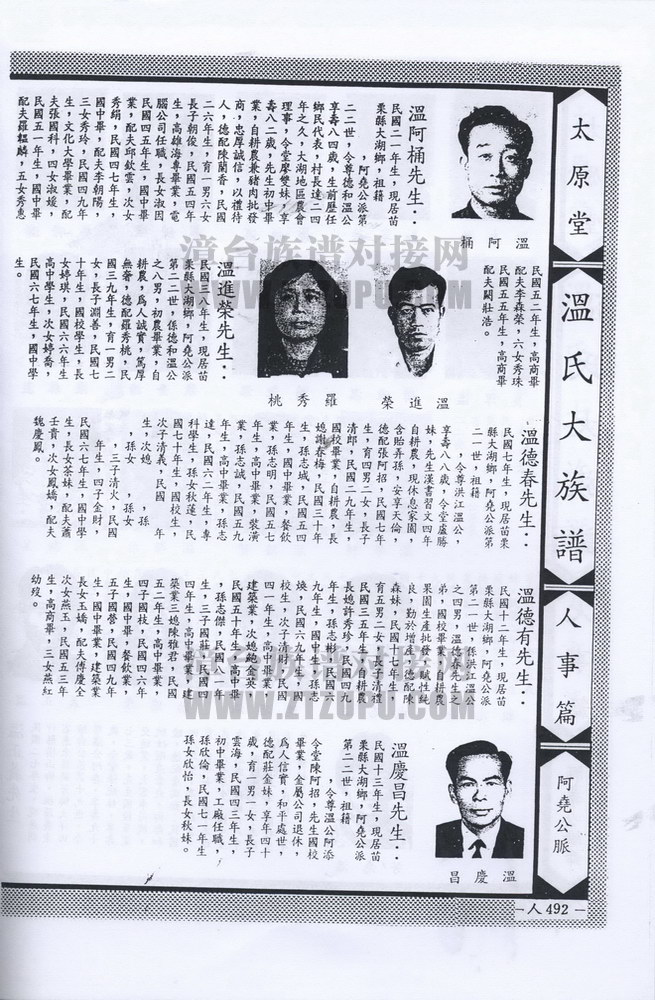 太原堂
溫氏大族譜
人事篇
阿堯公脈
—人492—
溫阿桶
溫阿桶先生：
民國二一年生，現居苗
栗縣大湖鄉，祖籍
，阿堯公派第
二二世，令尊德和溫公
享壽八四歲，生前歷任
鄉民代表，村長達二四
年之久，大湖地區農會
理事，令堂廖雙妹，享
壽八二歲，先生初中畢
業，自耕農兼豬肉批發
商，忠厚誠信，以禮待
人，德配陳蘭香，民國
二六年生，育一男六女
長子朝俊，民國五四年
生，高雄海專畢業，電
腦公司任職，長女淑因
民國四五年生，國中畢
業，配夫邱欽雲，次女
秀絹，民國四七年生，
國中畢，配夫李朝陽，
三女秀玲，民國四九年
生，文化大學畢業，配
夫張國科，四女淑媛，
民國五一年生，國中畢
配夫羅鰛麟，五女秀惠
民國五二年生，高商畢
配夫李森榮，六女秀珠
民國五五年生，高商畢
配夫闕壯浩。
溫進榮
羅秀桃
溫進榮先生：
民國三八年生，現居苗
栗縣大湖鄉，阿堯公派
第二二世，係德和溫公
之八男，初農畢業，自
耕農，爲人誠實，篤厚
無奢，德配羅秀桃，民
國三九年生，育一男二
女，長子淵善，民國七
十年生，國校學生，長
女婷琪，民國六六年生
高中學生，次女婷喬，
民國六七年生，國中學
生。
溫德春先生：
民國七年生，現居苗栗
縣大湖鄉，阿堯公派第
二一世，祖籍
，令尊洪江溫公，
享壽八八歲，令堂盧勝
妹，先生漢書習文四年
自耕農，現休息家園，
含飴弄孫，安享天倫，
德配張阿招，民國七年
生，育四男二女，長子
清郎，民國二九年生，
國校畢業，自耕農，長
媳謝春梅，民國三十年
生，孫志城，民國五四
年生，國中畢業，餐飲
業，孫志明，民國五七
年生，高中畢業，裝潢
業，孫志誠，民國五九
年生，高中畢業，孫志
達，民國六二年生，專
科學生，孫女秋蓮，民
國七十年生，國校生，
次子清義，民國　　年
生，次媳　　　，孫
，孫女　　，孫女
，三子清火，民國
年生，四子金財，
民國六七年生，國中學
生，長女茶妹，配夫蕭
壬貴，次女鳳嬌，配夫
魏慶鳳。
溫德有先生：
民國十二年生，現居苗
栗縣大湖鄉，阿堯公派
第二一世，係洪江溫公
之四男，溫德春先生之
弟，國校畢業，自耕農
果園生產批發，賦性純
良，勤於增產，德配陳
森妹，民國十七年生，
育五男二女，長子清禮
民國三五年生，自耕農
長媳許秀珍，民國四九
年生，孫志彬，民國六
九年生，國中生，孫志
煥，民國六九年生，國
校生，次子清財，民國
四一年生，高中畢業，
建築業，次媳鮑金英，
民國五十年生，高中畢
，孫志傑，民國八一年
生，三子國莊，民國四
四年生，高中畢業，建
築業，三媳陳雅君，民國
五二年生，高中畢業，
四子國枝，民國四六年
生，國中畢業，餐飲業，
五子國營，民國四九年
生，國中畢業，建築業
長女玉嬌，配夫傳慶全
次女燕玉，民國五三年
生，高商畢，三女燕紅
幼歿。
溫慶昌先生：
民國十三年生，現居苗
栗縣大湖鄉，阿堯公派
第二二世，祖籍
，令尊溫公阿添
令堂陳阿招，先生國校
畢業，金屬公司退休，
爲人信實，和平處世，
德配莊金妹，享年四十
歲，育一男一女，長子
雲海，民國四三年生，
初中畢業，工廠任職，
孫欣倫，民國七一年生
孫女欣怡，長女秋妹。
溫慶昌
漳台族谱对接网
WWW.ZTZUPU.COM
漳台族谱对接网
WWW.ZTZUPU.COM